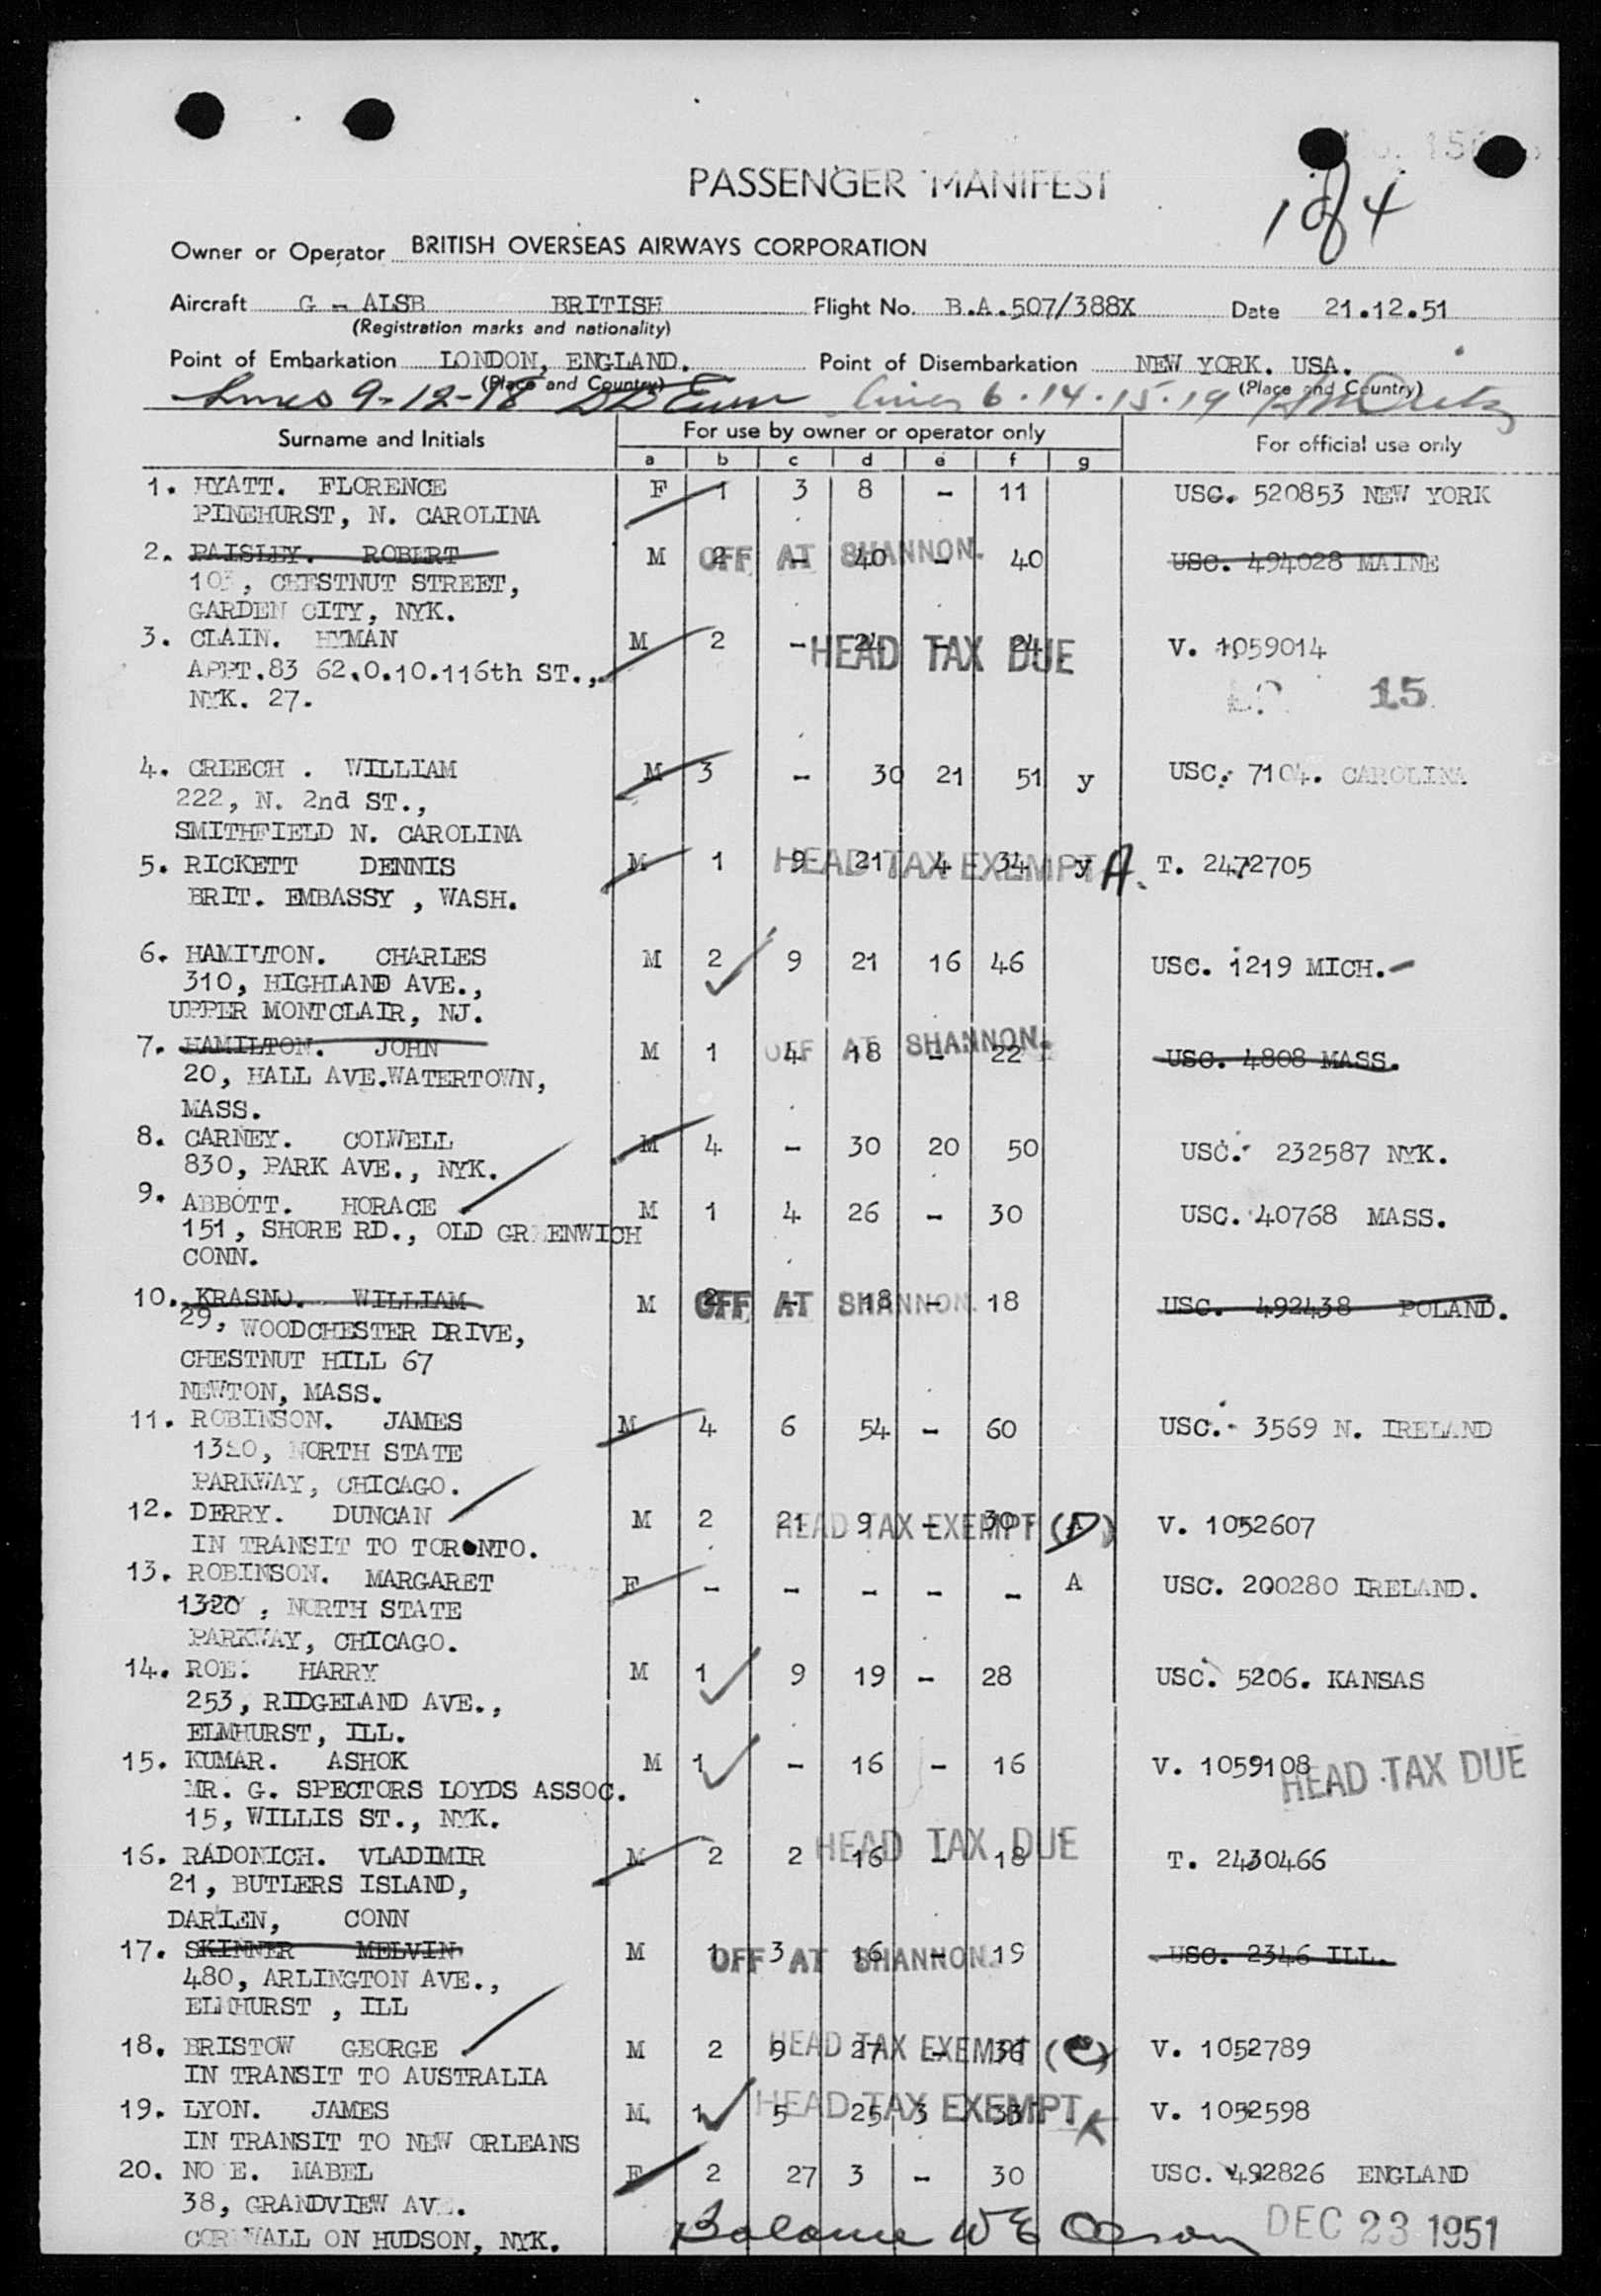 PASSENGER MANIFEST
1 of 4
Owner or Operator BRITISH OVERSEAS AIRWAYS CORPORATION
Aircraft G - ALSB BRITISH Flight No. B.A.507/388X Date 21.12.51
(Registration marks and nationality)
Point of Embarkation LONDON, ENGLAND. Point of Disembarkation NEW YORK. USA.
(Place and Country) (Place and Country)
Lines 9-12-18 Lines 6.14.15.19
Surname and Initials For use by owner or operator only For official use only
a b c d e f g
1. HYATT. FLORENCE F 1 3 8 - 11 USC. 520853 NEW YORK
PINEHURST, N. CAROLINA
2. PAISLEY. ROBERT M 2 - 40 - 40 OFF AT SHANNON. USC. 494028 MAINE
CHESTNUT STREET,
GARDEN CITY, NYK.
3. CLAIN. HYMAN M 2 - 24 - 24 HEAD TAX DUE V. 1059014
APPT.83 62.0.10.116th ST.,
NYK. 27. 15
4. CREECH . WILLIAM M 3 - 30 21 51 y USC. 7104. CAROLINA
222, N. 2nd ST.,
SMITHFIELD N. CAROLINA
5. RICKETT DENNIS M 1 9 21 4 34 y HEAD TAX EXEMPT A. T. 2472705
BRIT. EMBASSY , WASH.
6. HAMILTON. CHARLES M 2 9 21 16 46 USC. 1219 MICH.
310, HIGHLAND AVE.,
UPPER MONTCLAIR, NJ.
7. HAMILTON. JOHN M 1 4 18 - 22 OFF AT SHANNON. USC. 4808 MASS.
20, HALL AVE.WATERTOWN,
MASS.
8. CARNEY. COLWELL M 4 - 30 20 50 USC. 232587 NYK.
830, PARK AVE., NYK.
9. ABBOTT. HORACE M 1 4 26 - 30 USC. 40768 MASS.
151, SHORE RD., OLD GREENWICH
CONN.
10. KRASNO. WILLIAM M 2 - 18 - 18 OFF AT SHANNON. USC. 492438 POLAND.
29, WOODCHESTER DRIVE,
CHESTNUT HILL 67
NEWTON, MASS.
11. ROBINSON. JAMES M 4 6 54 - 60 USC. 3569 N. IRELAND
1320, NORTH STATE
PARKWAY, CHICAGO.
12. DERRY. DUNCAN M 2 21 9 - 30 HEAD TAX EXEMPT V. 1052607
IN TRANSIT TO TORONTO.
13. ROBINSON. MARGARET F - - - - - A USC. 200280 IRELAND.
1320 , NORTH STATE
PARKWAY, CHICAGO.
14. ROE. HARRY M 1 9 19 - 28 USC. 5206. KANSAS
253, RIDGELAND AVE.,
ELMHURST, ILL.
15. KUMAR. ASHOK M 1 - 16 - 16 V. 1059108 HEAD TAX DUE
MR. G. SPECTORS LOYDS ASSOC.
15, WILLIS ST., NYK.
16. RADONICH. VLADIMIR M 2 2 16 - 18 HEAD TAX DUE T. 2430466
21, BUTLERS ISLAND,
DARIEN, CONN
17. SKINNER MELVIN M 1 3 16 - 19 OFF AT SHANNON. USC. 2346 ILL.
480, ARLINGTON AVE.,
ELMHURST , ILL
18. BRISTOW GEORGE M 2 9 27 - 36 HEAD TAX EXEMPT V. 1052789
IN TRANSIT TO AUSTRALIA
19. LYON. JAMES M. 1 5 25 3 33 HEAD TAX EXEMPT V. 1052598
IN TRANSIT TO NEW ORLEANS
20. NO E. MABEL F 2 27 3 - 30 USC. 492826 ENGLAND
38, GRANDVIEW AVE.
CORNWALL ON HUDSON, NYK. Balance W E Olson DEC 23 1951